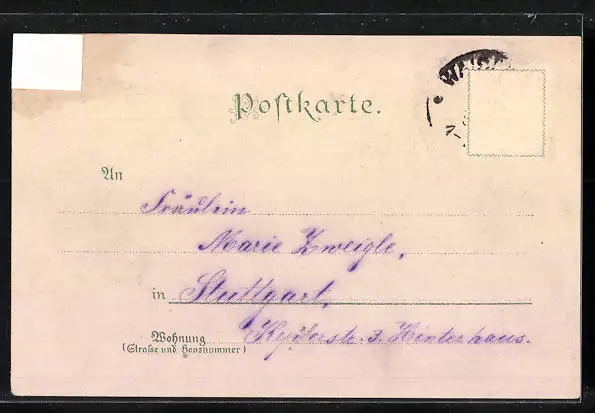 Postkarte.
An
Fräulein
Marie Zweigle,
in Stuttgart,
Wohnung
(Straße und Hausnummer)
Keplerstr. 3. Hinterhaus.